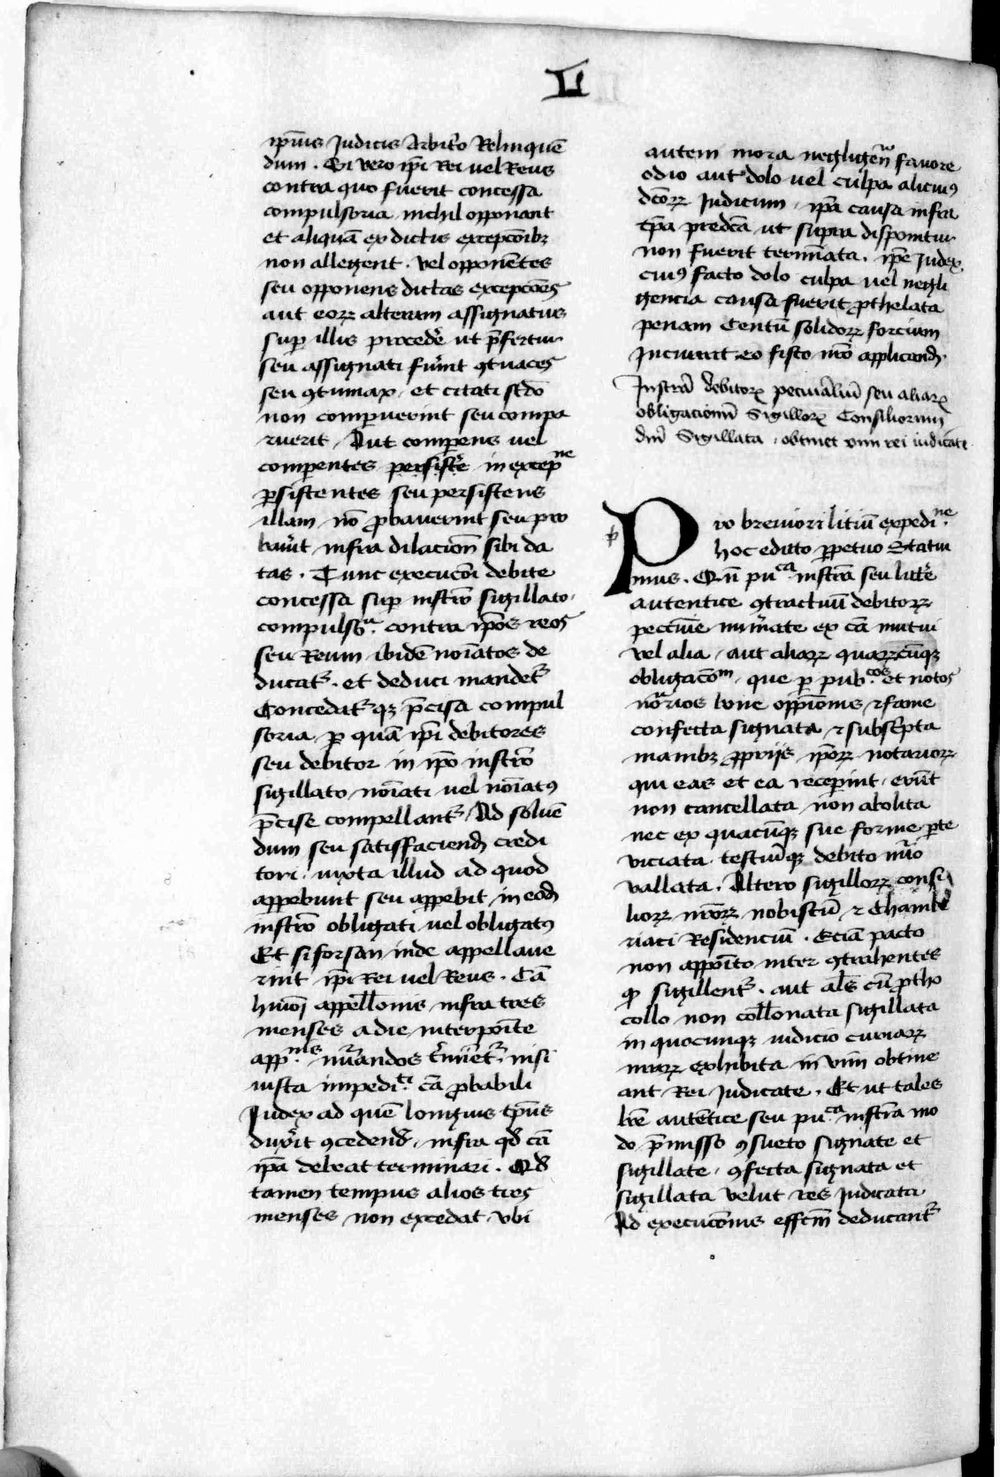 LI
ip̄ius Judicis Arbit'o Relinquē
dum . Si vero ip̄i Rei vel Reus
contra quo fuerit concessa
compulsoria nichil opponant
et aliquā ex dictis excepcōibz
non allegent . vel opponētes
seu opponens dictas excepcōes
aut eorz alteram assignatus
sup illis procedē ut p̄fertur
seu assignati fu'int 9tumaces
seu 9tumax . et citati sc̄do
non comperuerint seu compa
ruerit , Aut comperens vel
comperentes persist'e in excep^ne
ꝑsistentes seu persistens
illam nō ꝓbauerint seu pro
bau'it infra dilacionē sibi da
tas . Tunc execucōi debite
concessa sup instrō sigillato
compulsō^a . contra ip̄os reos
seu Reum ibidē noīatos de
ducat' . et deduci mandet'
Concedat' qz p̄cisa compul
soria ꝑ quā ip̄i debitores
seu debitor in ip̄o instrō
sigillato noīati vel noīatꝰ
p̄cise compellant' Ad soluē
dum seu satisfaciend credi
tori iuxta illud ad quod
apparebunt seu apparebit in eod
instrō obligati vel obligatꝰ
Et si forsan inde appellaue
rint ip̄i Rei vel Reus . Cā
hmōi appell̄onis infra tres
menses a die interpoīte
app^nis . nūandos t'mīet' nisi
iusta impedi^ti cā ꝓbabili
Judex ad quē longius tp̄us
dux'it 9cedend , infra qd cā
ip̄a debeat terminari . Qd
tamen tempus alios tres
menses non excedat vbi
autem mora negligen favore
odio aut dolo vel culpa alicuiꝰ
dc̄orz Judicum ip̄a causa infra
tp̄a predcā ut supra disponitur
non fuerit termīata . ip̄e Judex
cuiꝰ facto dolo culpa vel negli
gencia causa fuerit ꝓthelata
penam Centū solidorz forcium
Incurrat eo fisco nr̄o applicand
Instrā debitorz pecuniar seu aliarz
obligacionū Sigillorz Consiliorum
dn̄i Sigillata , obtinet vim rei iudicate
p
Pro breuiori litiū expedi^ne .
hoc edicto ꝑpetuo Statui
mus . Q n̄ pu^ca instrā seu litt'e
autentice 9tractuū debitorz
peccuīe nūmate ex cā mutui
vel alia , aut aliarz quarzcūqz
obligacōm , que ꝑ pub^cos et notos
nō^rios bone oppīonis , ⁊ fame
confecta signata ⁊ subsc'pta
manibz ꝓpriis ip̄orz notariorz
qui eas et ea receperint , erūt
non cancellata non abolita
nec ex quacūqz sue forme ꝑte
viciata . testiūqz debito nūo
vallata . Altero sigillorz consi
liorz nr̄orz nobiscū ⁊ Chambe
riaci Residenciū . Eciā pacto
non appoīto inter 9trahentes
qd sigillent' . aut al's cū ꝓtho
collo non coll̄onata sigillata
in quocunqz iudicio curiarz
nrarz exhibita in vim obtine
ant Rei Judicate . Et ut tales
lr̄e autētice seu pu^ca instrā mo
do p̄misso 9sueto signate et
sigillate , 9fecta signata et
sigillata velut res Judicata
Ad execucōnis effectm̄ deducant'